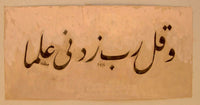 وقل رب زدنی علما